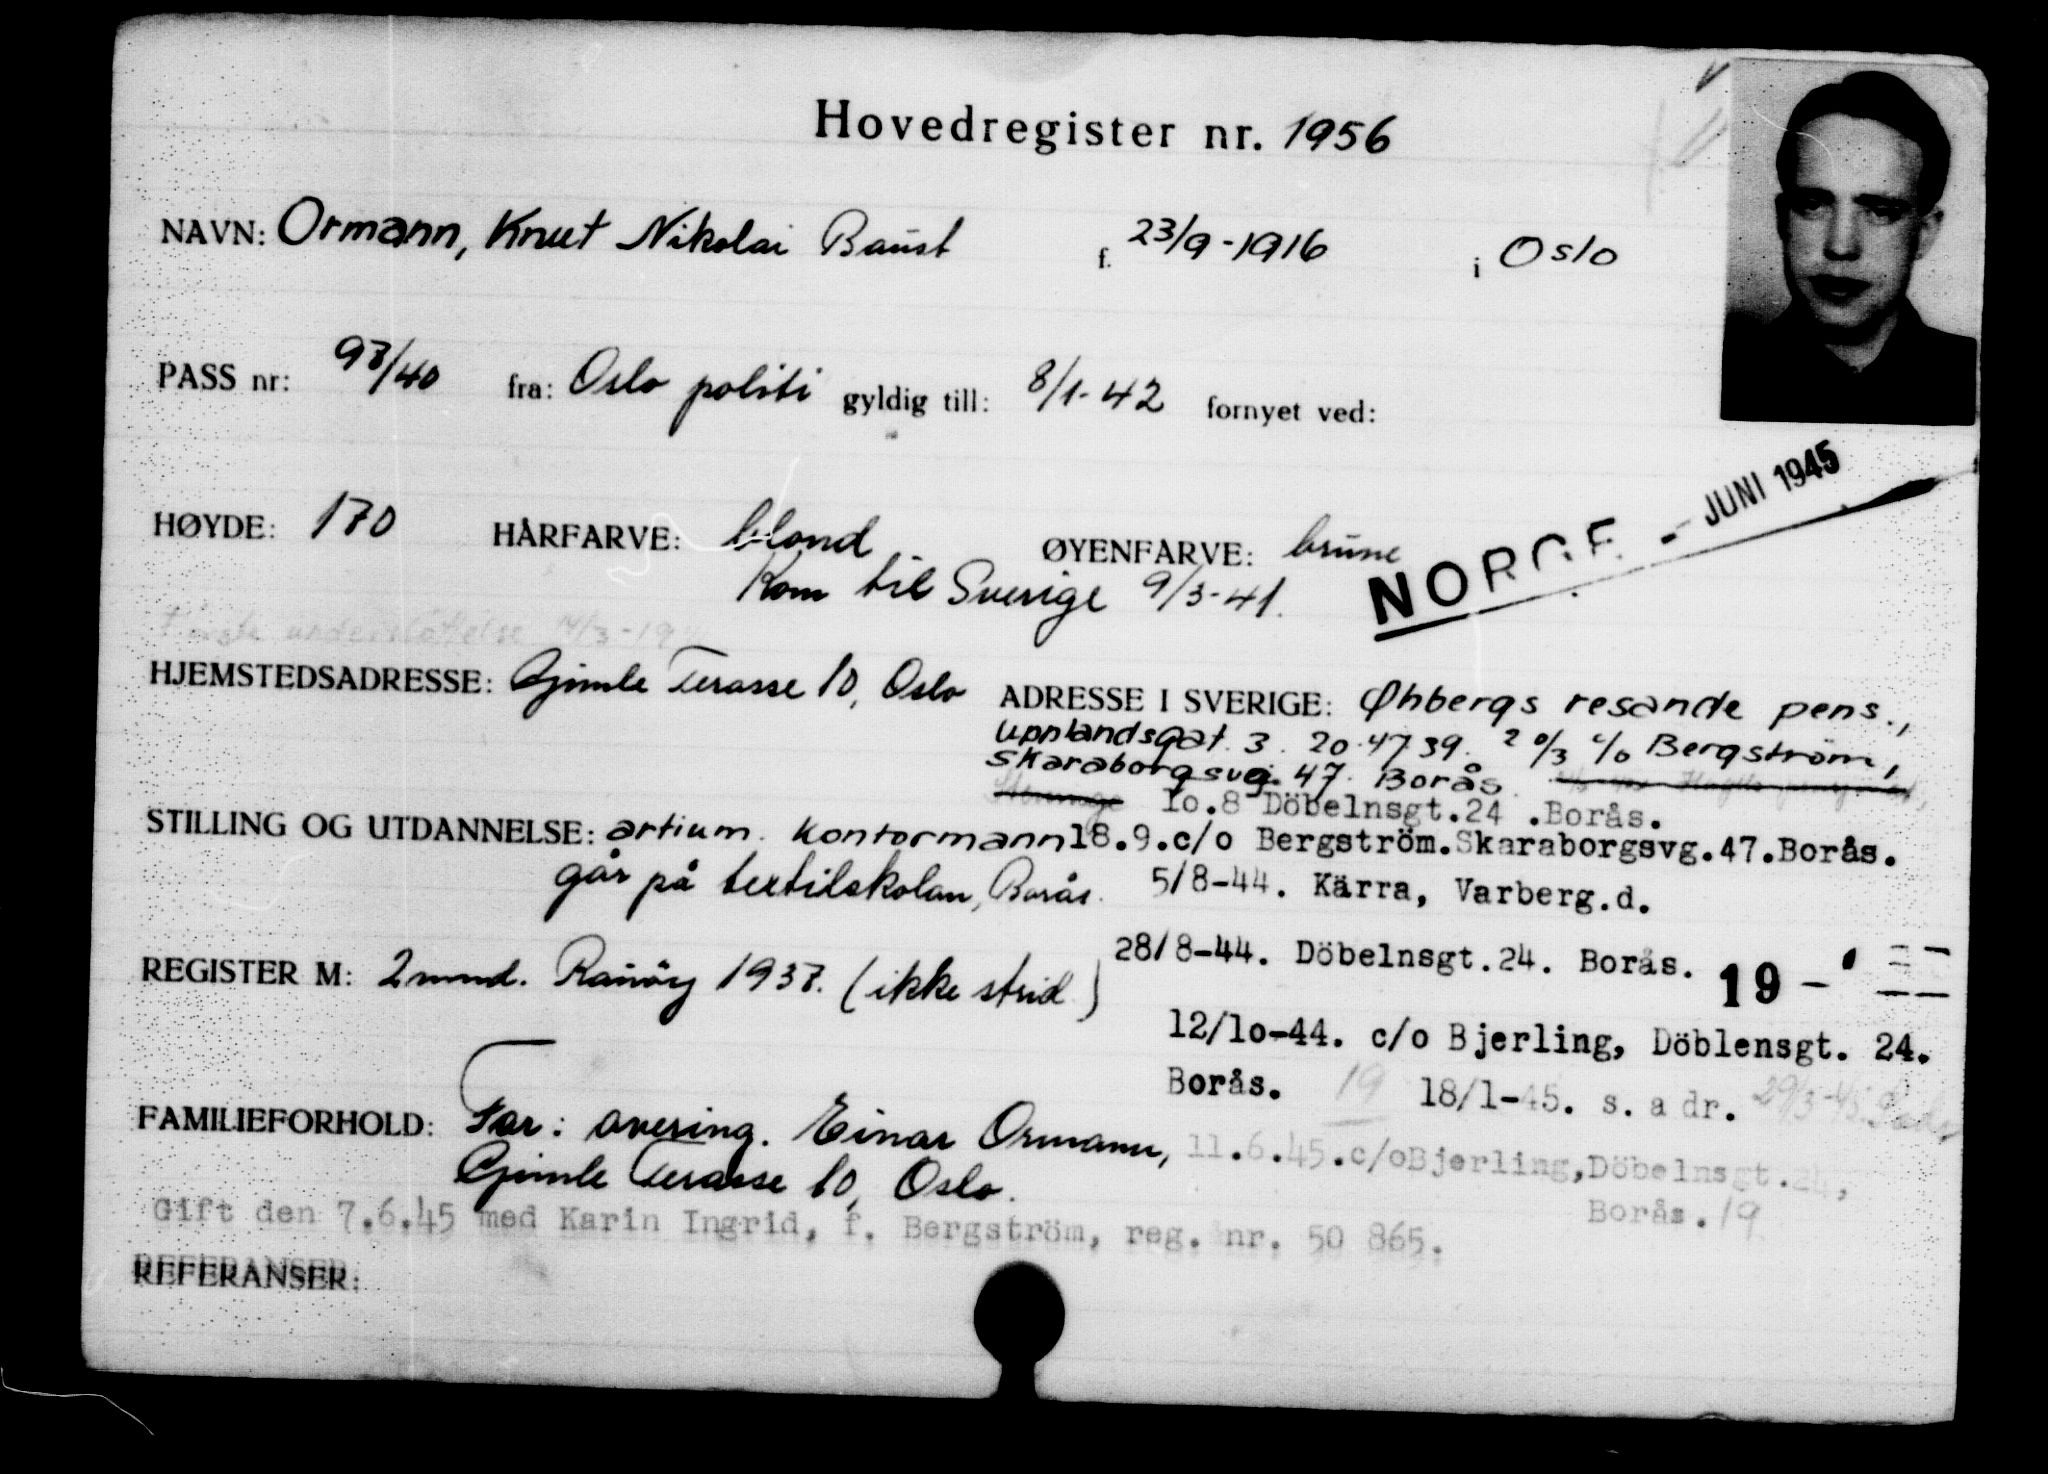 Hovedregister nr. 1956
NAVN: Ormann, Knut Nikolai Baust f. 23/9-1916 i Oslo
PASS nr: 93/40 fra: Oslo politi gyldig till: 8/1-42 fornyet ved:
NORGE - JUNI 1945
HØYDE: 170 HÅRFARVE: blond ØYENFARVE: brune
Kom til Sverige 9/3-41.
Første understøttelse
HJEMSTEDSADRESSE: Gjimle Terasse 10, Oslo ADRESSE I SVERIGE: Øhbergs resande pens.,
Upplandsgat. 3. 20.47.39. 20/3 c/o Bergström,
Skaraborgsvg. 47. Borås.
10.8 Döbelnsgt.24 .Borås.
STILLING OG UTDANNELSE: artium. Kontormann 18.9.c/o Bergström.Skaraborgsvg.47.Borås.
går på textilskolan, Borås. 5/8-44. Kärra, Varberg.d.
28/8-44. Döbelnsgt.24. Borås. 19 -
REGISTER M: 2 mnd. 1937. (ikke strid)
12/10-44. c/o Bjerling, Döblensgt. 24.
Borås. 19 18/1-45. s. adr. 29/3-45.
FAMILIEFORHOLD: Far: overing. Einar Ormann, 11.6.45.c/oBjerling,Döbelnsgt.24,
Gjimle Terasse 10, Oslo. Borås. 19
Gift den 7.6.45 med Karin Ingrid, f. Bergström, reg. nr. 50 865.
REFERANSER: